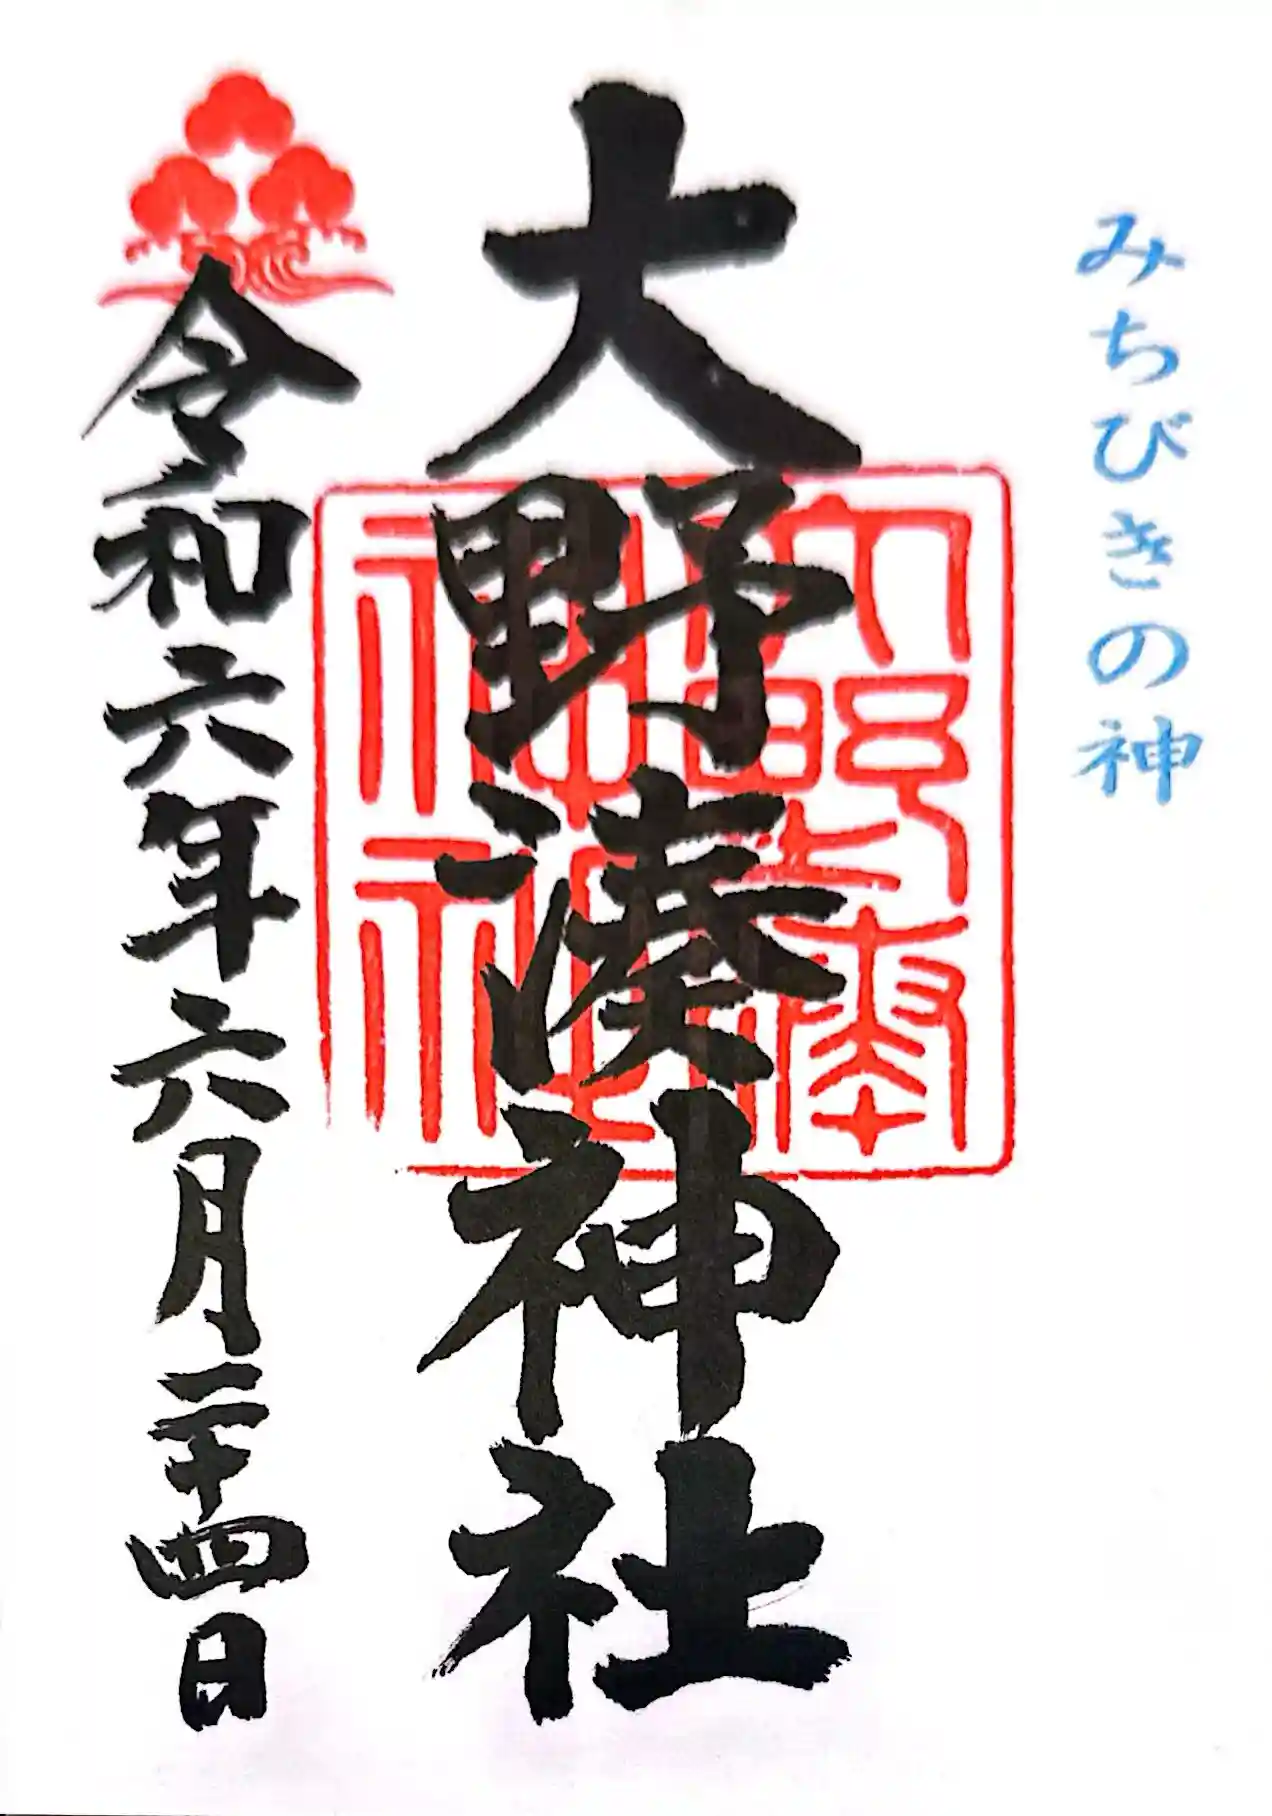 みちびきの神
大野湊神社
令和六年六月二十四日
大野湊
神社